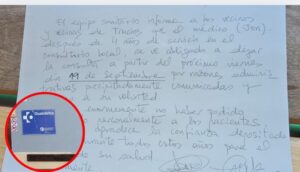 El equipo sanitario informa a los vecinos
y vecinas de Trucios que el médico (Jon)
después de 4 años de servicio en el
consultorio local, se ve obligado a dejar
la consulta a partir del próximo viernes
día 19 de Septiembre por razones
precipitadamente comunicadas y
a su voluntad
no haber podido
a los pacientes
agradece la confianza depositada
durante todos estos años para el
de su salud.
Osakidetza